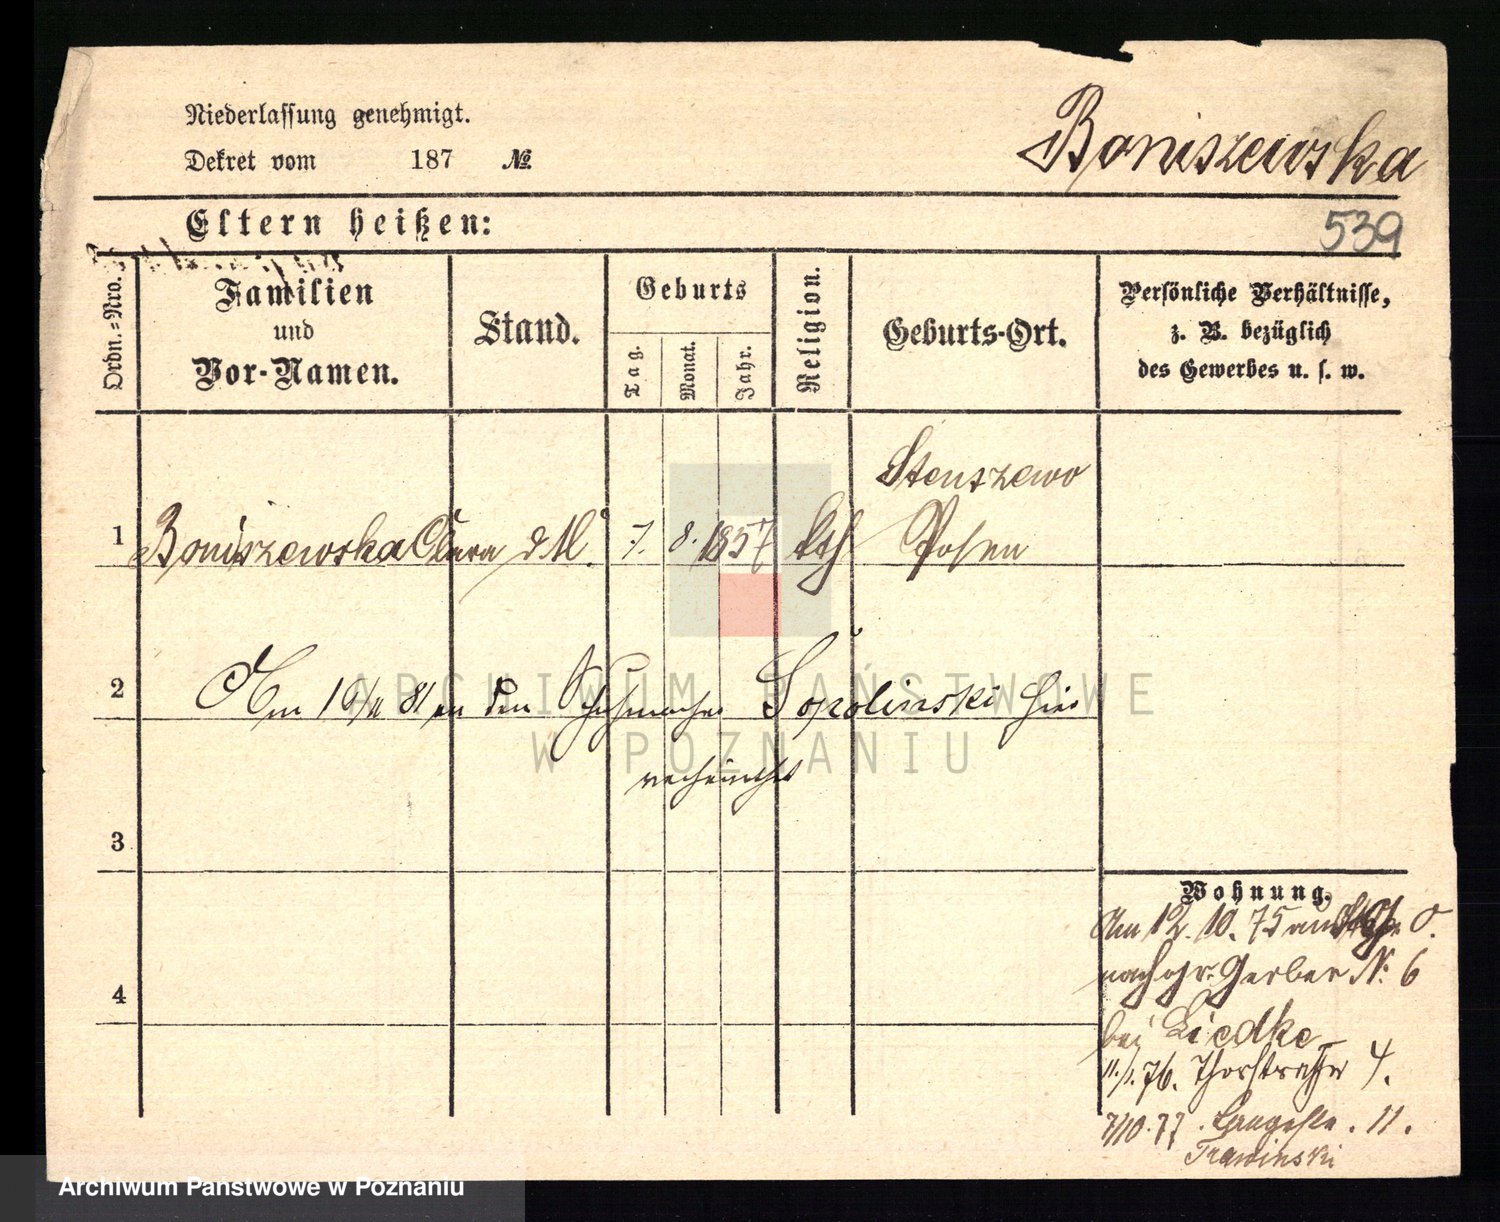 Niederlassung genehmigt.
Dekret vom 187 №
Boniszewska
Eltern heißen:
539
Ordn.=Nro.
Familien
und
Vor-Namen.
Stand.
Geburts
Tag.
Monat.
Jahr.
Religion.
Geburts-Ort.
Persönliche Verhältnisse,
z. B. bezüglich
des Gewerbes u. s. w.
Stenszewo
1 Boniszewska Clara d M. 7. 8. 1857 kth Posen
2 Am 16/11 81 an den Schuhmacher Sopolinski hier
verheirathet
3
4
Wohnung.
Am 12. 10. 75 0.
nach gr. Gerber N: 6
bei Liedke
11./1. 76. Thorstrasse 4.
7/10. 77. Langestr. 11.
Trawinski
ARCHIWUM PAŃSTWOWE
W POZNANIU
Archiwum Państwowe w Poznaniu